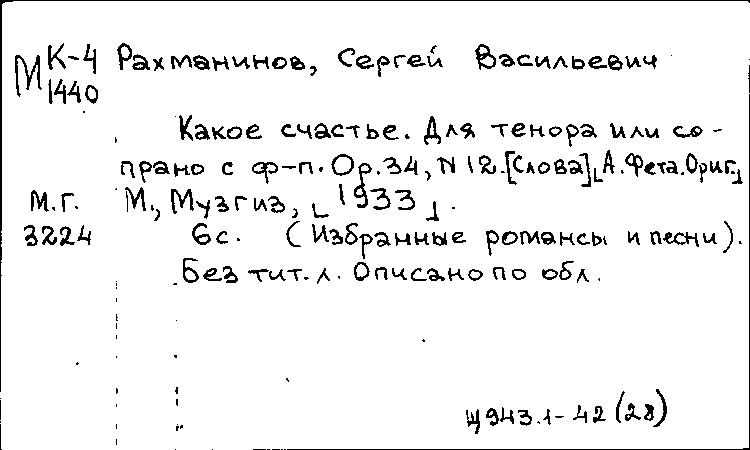 М К-4 Рахманинов, Сергей Васильевич
1440
Какое счастье. Для тенора или со-
прано с ф-п. Ор.34, N 12. [Слова] [А. Фета. Ориг.]
М.Г. М., Музгиз, [1933].
3224 6с. (Избранные романсы и песни).
Без тит. л. Описано по обл.
Щ943.1-42(28)